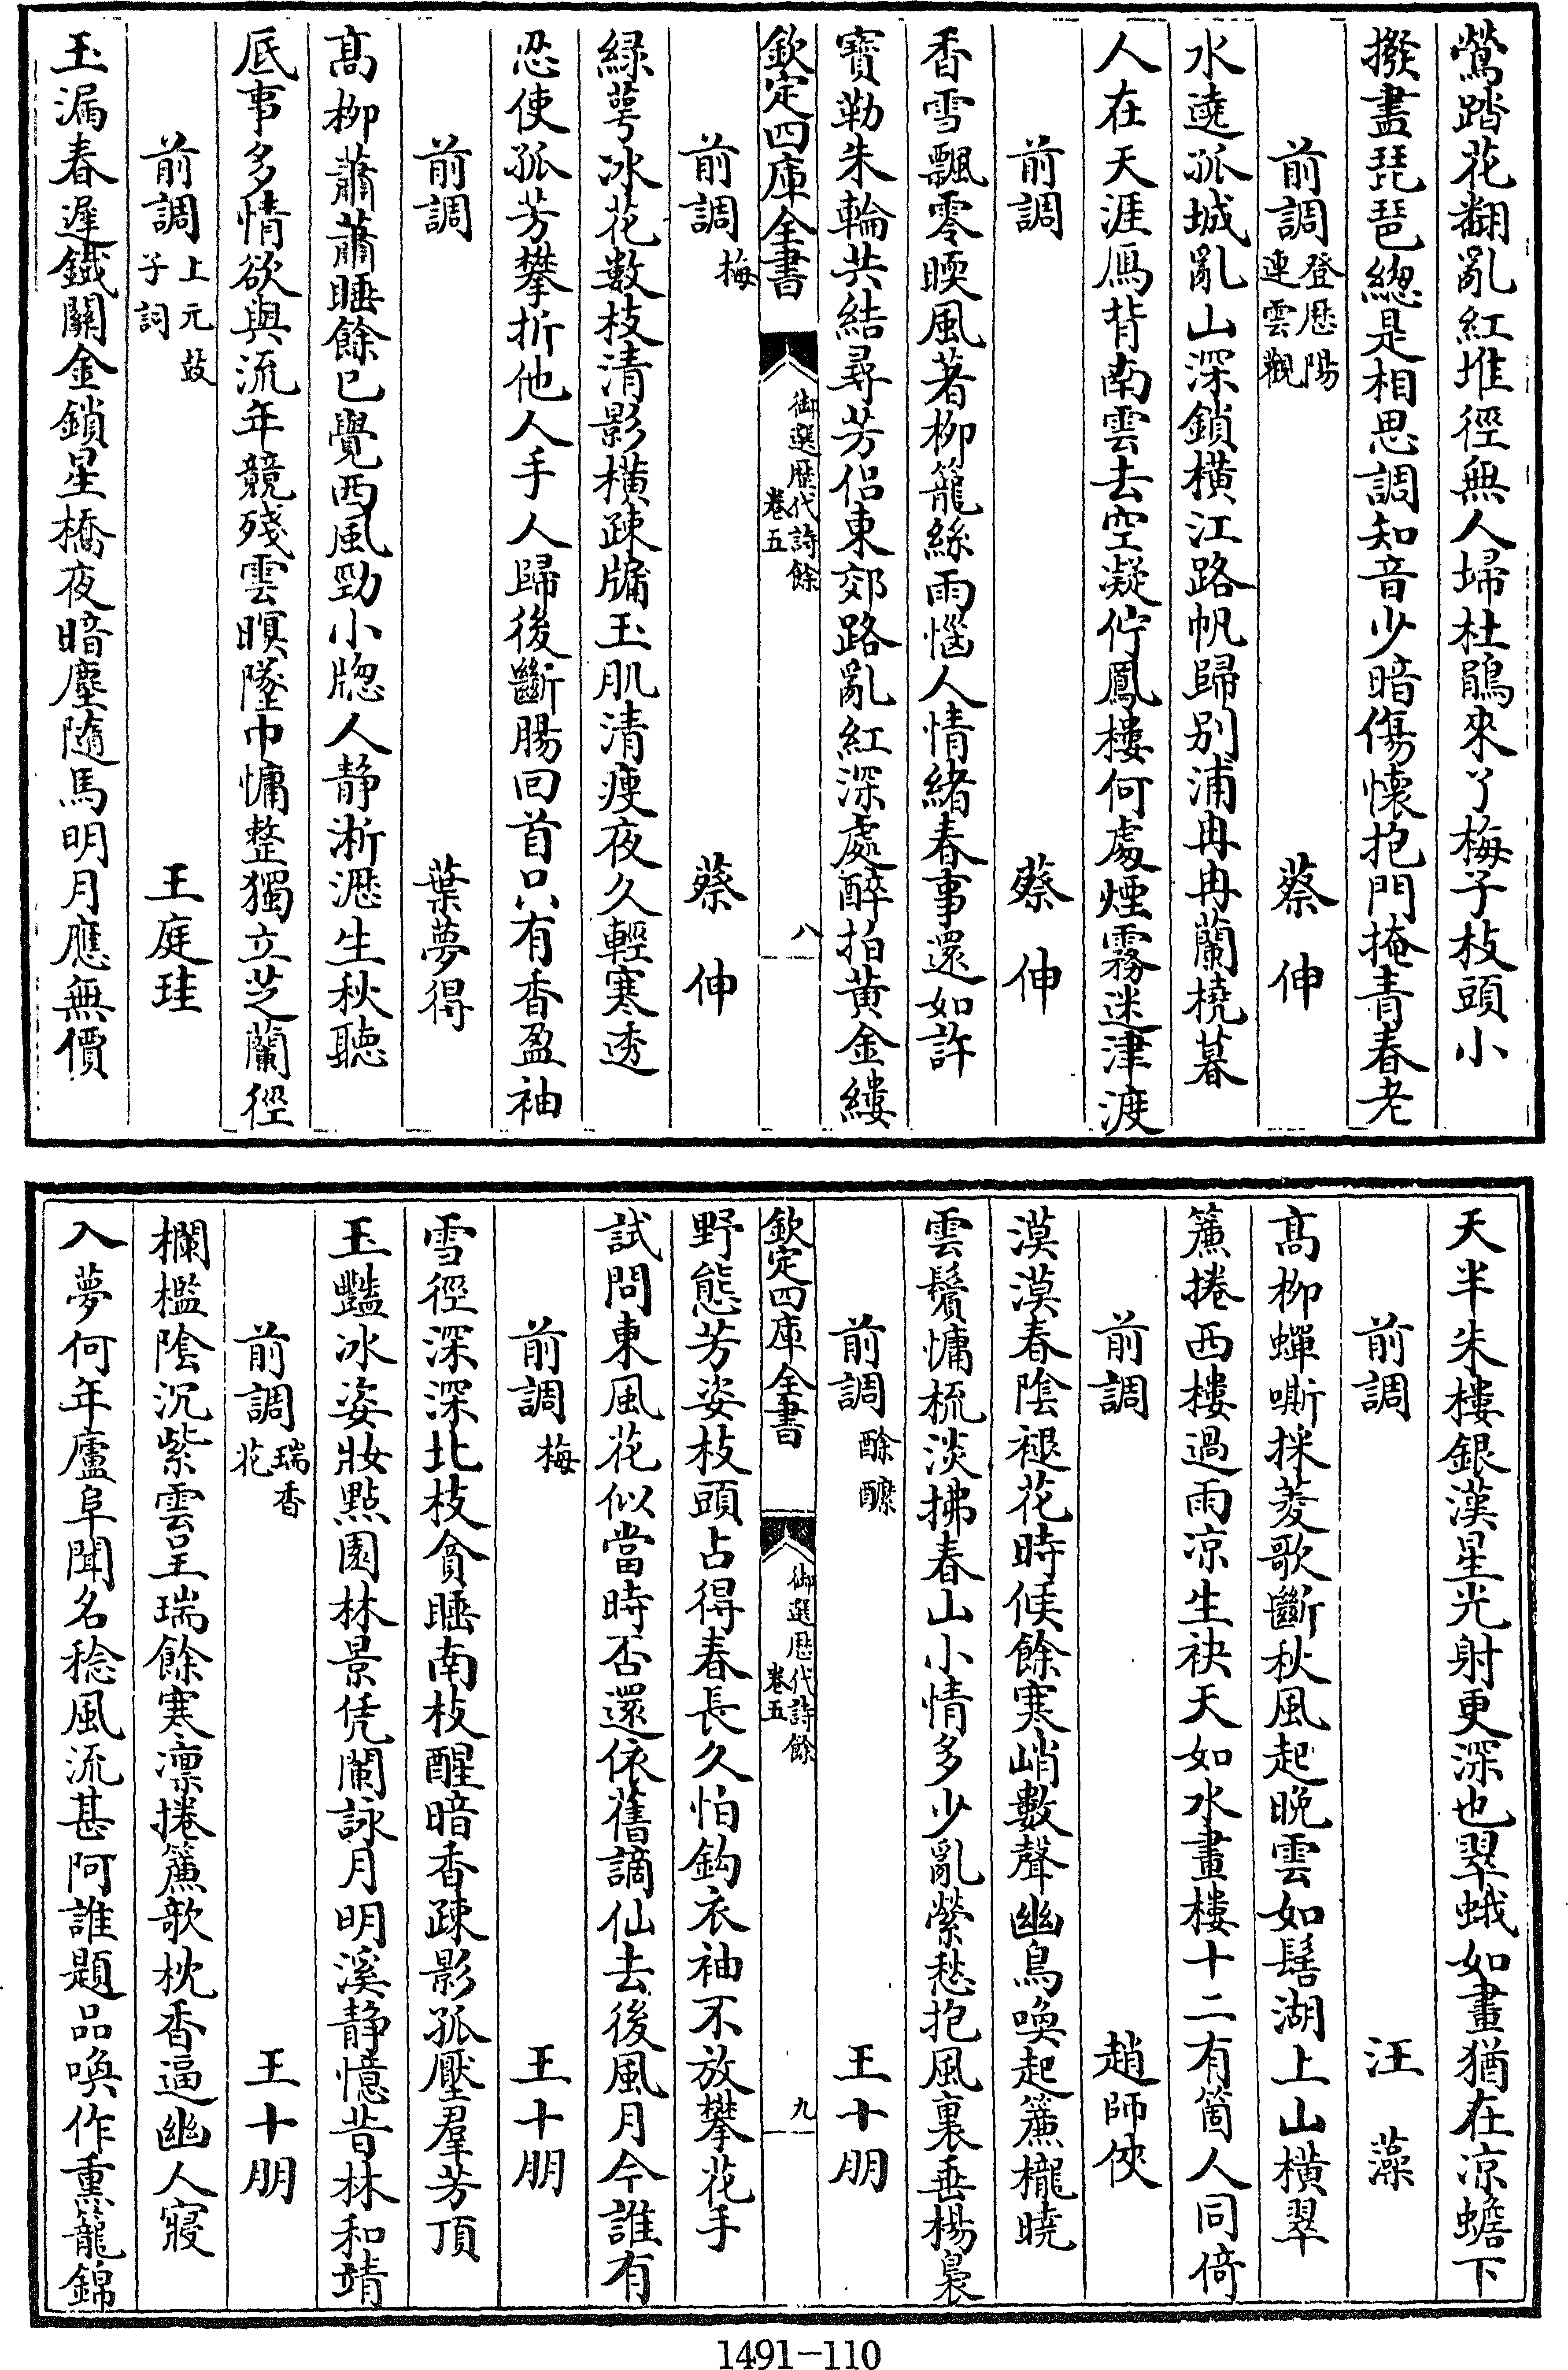 鶯踏花翻亂紅堆徑無人埽杜鵑來了梅子枝頭小
撥盡琵琶總是相思調知音少暗傷懷抱門掩青春老
前調登歷陽連雲觀　蔡伸
水遶孤城亂山深鎖橫江路帆歸别浦冉冉蘭橈暮
人在天涯鴈背南雲去空凝佇鳳樓何處煙霧迷津渡
前調　蔡伸
香雪飄零暖風著栁籠絲雨惱人情緒春事還如許
寶勒朱輪共結尋芳侶東郊路亂紅深處醉拍黄金縷
欽定四庫全書　御選歷代詩餘卷五　八
前調梅　蔡伸
緑萼冰花數枝清影橫疎牖玉肌清瘦夜久輕寒透
忍使孤芳攀折他人手人歸後斷腸回首只有香盈袖
前調　葉夢得
髙栁蕭蕭睡餘已覺西風勁小牕人静淅瀝生秋聽
底事多情欲與流年競殘雲暝墜巾慵整獨立芝蘭徑
前調上元鼓子詞　王庭珪
玉漏春遲鐵關金鎖星橋夜暗塵隨馬明月應無價
天半朱樓銀漢星光射更深也翠蛾如畫猶在凉蟾下
前調　汪藻
髙栁蟬嘶採菱歌斷秋風起晚雲如髻湖上山橫翠
簾捲西樓過雨凉生袂天如水畫樓十二有箇人同倚
前調　趙師俠
漠漠春陰褪花時候餘寒峭數聲幽鳥喚起簾櫳曉
雲鬟慵梳淡拂春山小情多少亂縈愁抱風裏垂楊裊
前調酴醿　王十朋
欽定四庫全書　御選歷代詩餘卷五　九
野態芳姿枝頭占得春長久怕鈎衣袖不放攀花手
試問東風花似當時否還依舊謫仙去後風月今誰有
前調梅　王十朋
雪徑深深北枝貪睡南枝醒暗香疎影孤壓羣芳頂
玉豔冰姿妝點園林景凭闌詠月明溪静憶昔林和靖
前調瑞香花　王十朋
欄檻陰沉紫雲呈瑞餘寒凛捲簾欹枕香逼幽人寢
入夢何年廬阜聞名稔風流甚阿誰題品喚作熏籠錦
1491-110